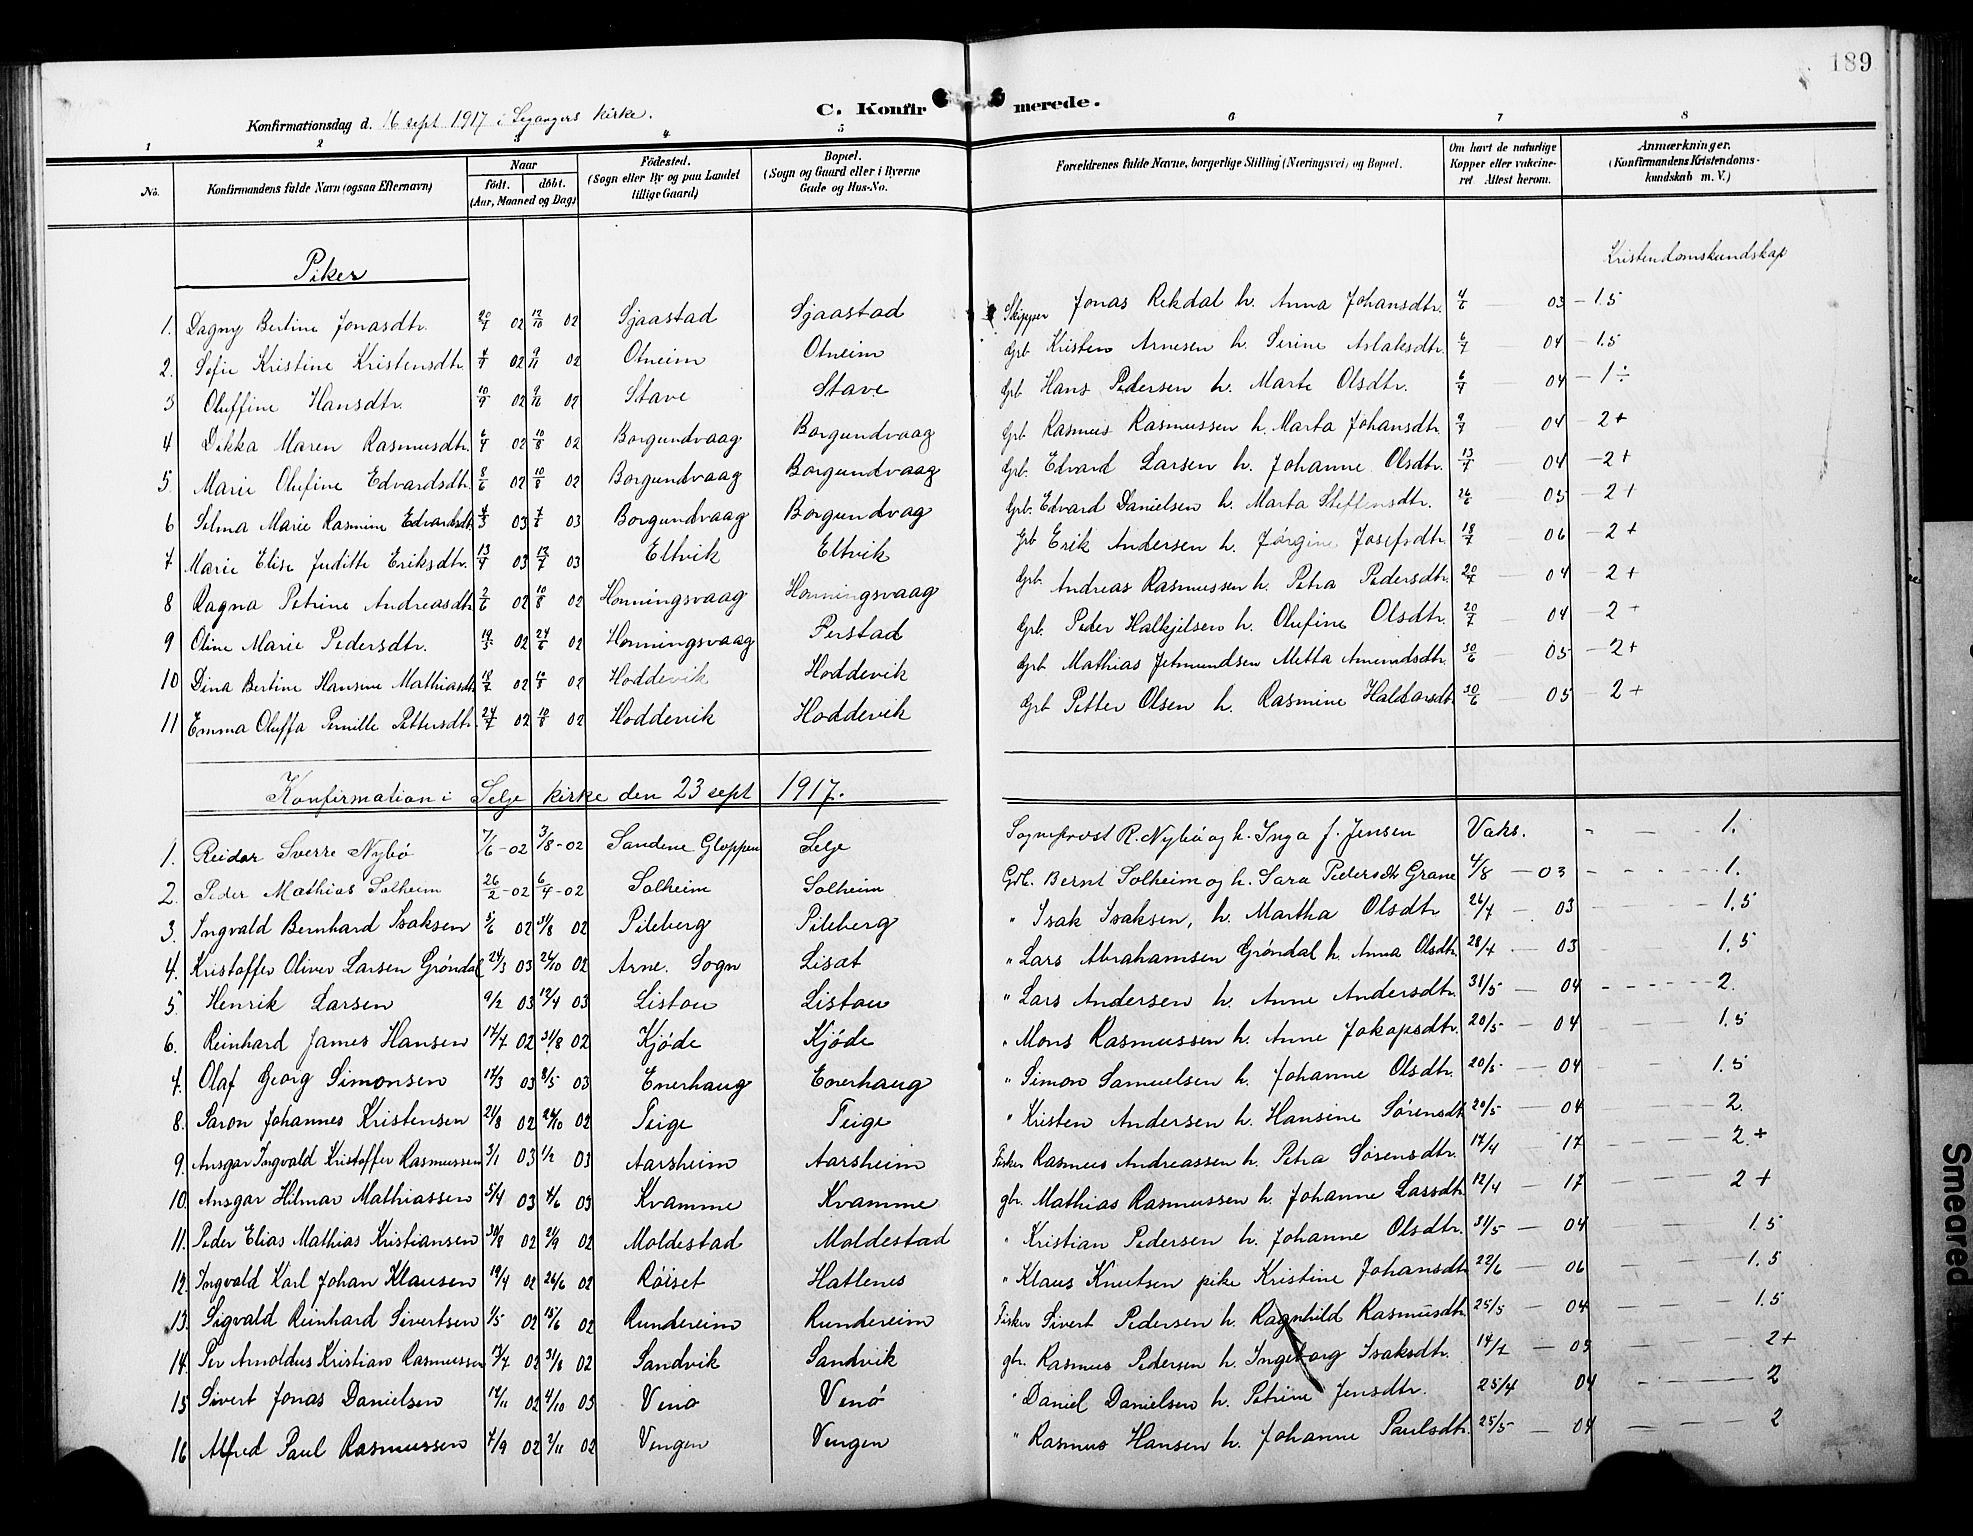 189
C. Konfirmerede.
Konfirmationsdag d. 16 sept 1917 i Leganger kirke.
1 2 3 4 5 6 7 8
No. Konfirmandens fulde Navn (ogsaa Efternavn) Naar födt. döbt. (Aar, Maaned og Dag) Födested. (Sogn eller By og paa Landet tillige Gaard) Bopæl. (Sogn og Gaard eller i Byerne Gade og Hus-No. Forældrenes fulde Navne, borgerlige Stilling (Næringsvei) og Bopæl. Om havt de naturlige Kopper eller vakcineret Attest herom. Anmærkninger. (Konfirmandens Kristendomskundskab m. V.)
Piker Kristendomskundskap
1. Dagny Bertine Jonasdtr. 20/7 02 12/10 02 Sjaastad Sjaastad Skipper Jonas Rekdal h. Anna Johansdtr. 4/6 — 03 — 1.5
2. Sofie Kristine Kristensdtr. 02 9/11 02 Otneim Otneim Grb. Kristen Arnesen h. Serine Aslaksdtr. 6/7 — 04 — 1.5
3 Oluffine Hansdtr. 10/9 02 02 Stave Stave Grb. Hans Pedersen h. Marte Olsdtr. 6/7 — 04 — 1÷
4 Dikka Maren Rasmusdtr. 02 10/8 02 Borgundvaag Borgundvaag Grb. Rasmus Rasmussen h. Marta Johansdtr. 9/7 04 — 2+
5. Marie Olufine Edvardsdtr. 8/6 02 10/8 02 Borgundvaag Borgundvaag Grb. Edvard Larsen h. Johanne Olsdtr. 13/7 — 04 — 2+
6 Selma Marie Rasmine Edvardsdtr. 03 03 Borgundvaag Borgundvag Grb. Edvard Danielsen h. Marta Steffensdtr. 26/6 — 05 — 2+
7 Marie Elise Juditte Eriksdtr. 03 13/7 03 Eltvik Eltvik Grb Erik Andersen h. Jørgine Josefsdtr. 18/7 — 06 — 2+
8 Ragna Petrine Andreasdtr. 2/6 02 10/8 02 Honningsvaag Honningsvaag Grb. Andreas Rasmussen h. Petra Pedersdtr. 20/7 — 04 — 2+
9 Oline Marie Pedersdtr. 19/5 02 24/6 02 Honningsvaag Perstad Grb. Peder Halkjelsen h. Olufine Olsdtr. 20/7 — 04 — 2+
10 Dina Bertine Hansine Mathiasdtr. 18/7 02 10/8 02 Hoddevik Hoddevik Grb Mathias Jetmundsen Metta Amundsdtr. 30/6 — 05 — 2+
11 Emma Oluffa Pernille Pettersdtr. 24/7 02 10/8 02 Hoddevik Hoddevik Grb Petter Olsen h. Rasmine Haldorsdtr. 30/6 — 05 — 2+
Konfirmation i Selje kirke den 23 sept 1917.
1. Reidar Sverre Nybø 7/6 - 02 3/8 - 02 Sandene Gloppen Selje Sogneprest R. Nybø og h. Inga f. Jensen Vaks. - — - 1.
2. Peder Mathias Solheim 26/2 - 02 6/4 - 02 Solheim Solheim Gdb. Bernt Solheim og h. Sara Pedersdtr Grane 4/8 — 03 - - - - 1.
3. Ingvald Bernhard Isaksen 5/6 02 31/8 02 Pileberg Pileberg " Isak Isaksen, h. Martha Olsdtr 26/7 — 03 — — 1.5
4. Kristoffer Oliver Larsen Grøndal 24/3 03 26/10 02 Arne. Sogn Lisæt " Lars Abrahamsen Grøndal h. Anna Olsdtr. 28/7 — 03 — 1.5
5 Henrik Larsen 9/2 03 12/4 03 Listou Listou " Lars Andersen h. Anne Andersdtr. 31/5 — 04 - - - - 2.
6. Reinhard James Hansen 17/7 02 31/8 02 Kjøde Kjøde " Mons Rasmussen h. Anne Jakopsdtr. 20/5 — 04 1.5
7. Olaf Georg Simonsen 17/3 03 8/5 03 Enerhaug Enerhaug " Simon Samuelsen h. Johanne Olsdtr. 20/5 — 04 1.5
8. Saron Johannes Kristensen 21/8 02 26/10 02 Teige Teige " Kristen Andersen h. Hansine Sørensdtr 20/5 — 04 — 2.
9. Ansgar Ingvald Kristoffer Rasmussen 3/1 03 1/2 03 Aarsheim Aarsheim Fisker Rasmus Andreassen h. Petra Sørensdtr. 17/4 — 17 — 2.+
10. Ansgar Hilmar Mathiassen 5/4 03 4/6 03 Kvamme Kvamme gbr. Mathias Rasmussen h. Johanne Larsdtr. 12/4 — 17 — 2+
11. Peder Elias Mathias Kristiansen 30/8 02 2/9 02 Moldestad Moldestad " Kristian Pedersen h. Johanne Olsdtr. 31/5 — 04 — 1.5
12. Ingvald Karl Johan Klausen 19/4 02 26/6 02 Røiset Hatlenes " Klaus Knutsen pike Kristine Johansdtr. 22/6 — 06 — 1.5
13. Sigvald Reinhard Sivertsen 1/5 02 15/6 02 Rundereim Rundereim Fisker Sivert Pedersen h. Ragnhild Rasmusdtr. 25/5 — 04 — 1.5
14. Per Arnoldus Kristian Rasmussen 17/7 02 31/8 02 Sandvik Sandvik gbr. Rasmus Pedersen h. Ingeborg Isaksdtr. — 05 — 2+
15 Sivert Jonas Danielsen 17/11 02 4/10 03 Venø Venø " Daniel Danielsen h. Petrine Jensdtr. 25/4 04 — 2
16 Alfred Paul Rasmussen 7/9 02 2/11 02 Vengen Vengen " Rasmus Hansen h. Johanne Paulsdtr. 25/5 — 04 — 2
Smeared